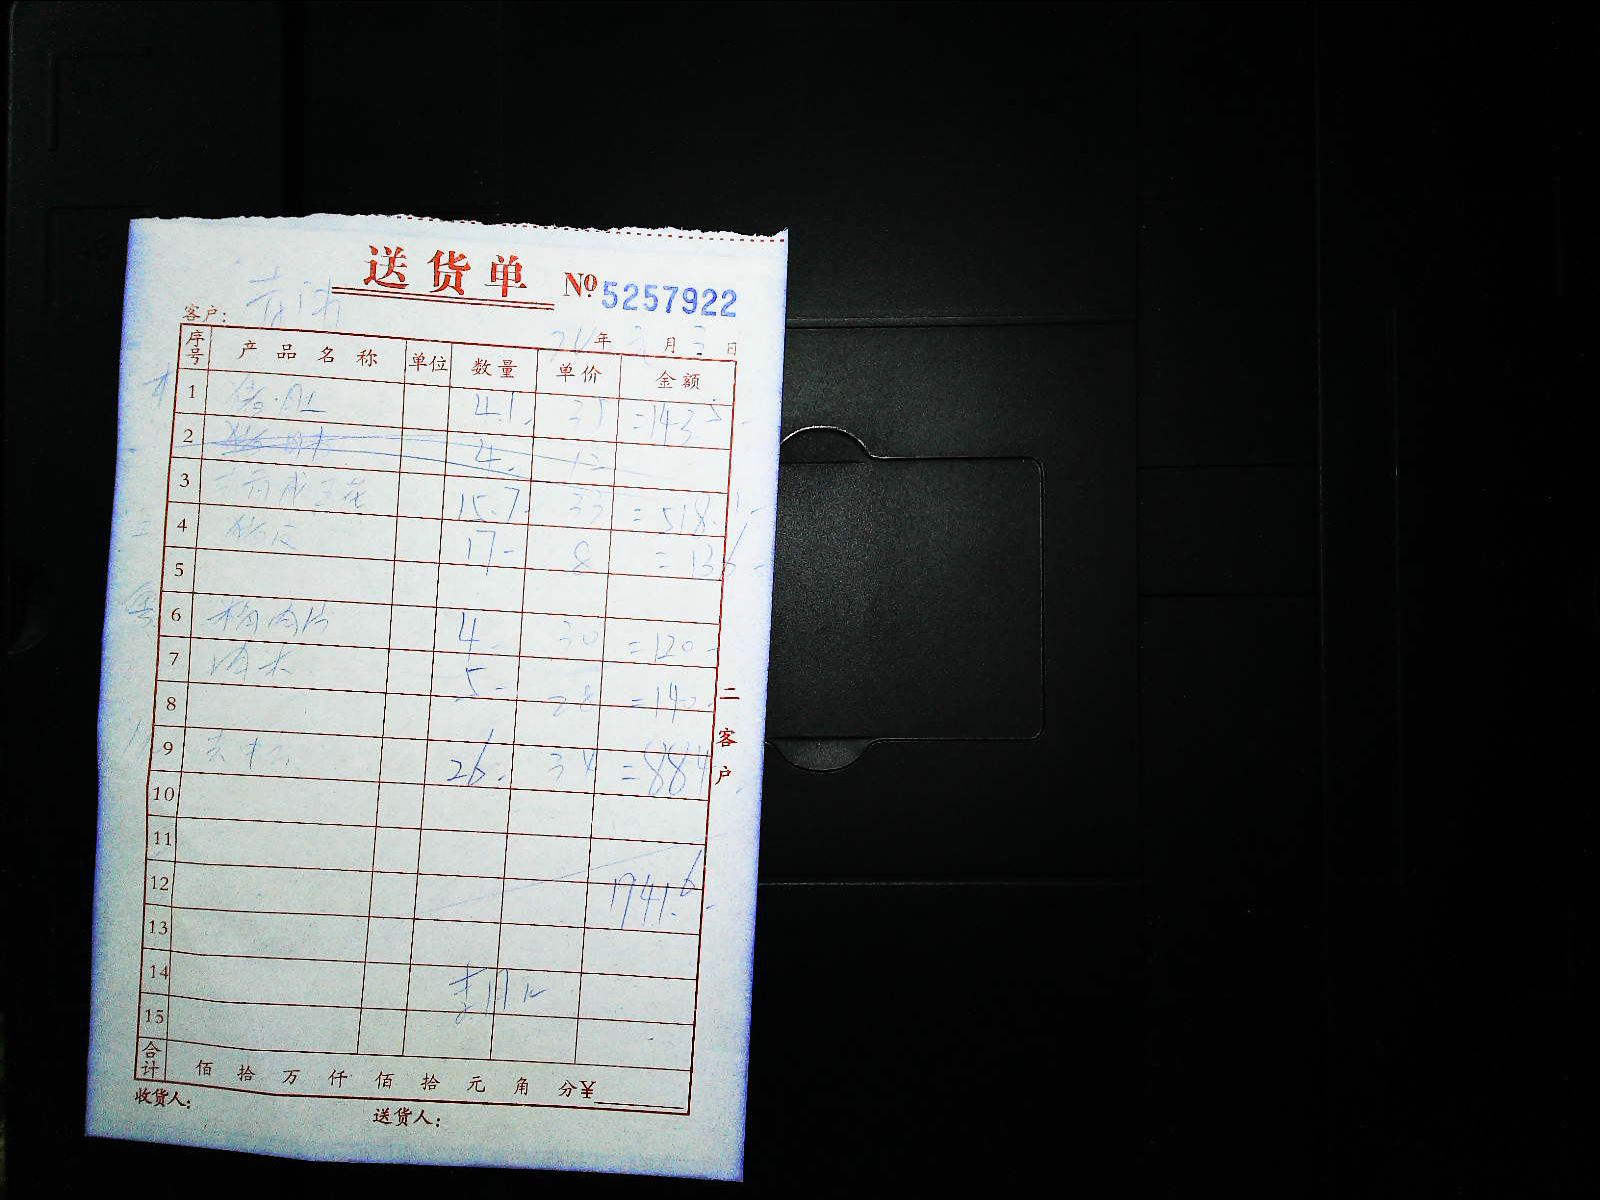 送货单 №5257922
客户：
年 月 日
序号 产品名称 单位 数量 单价 金额
1 猪肚 4.1 35 =143.5
2 4. 12
3 15.7 33 =518.1
4 猪皮 17- 8 =136-
5
6 梅肉片 4- 30 =120-
7 肉末 5- 28 =140-
8
9 26. 34 =884
10
11
12 1741.6
13
14
15
合计 佰 拾 万 仟 佰 拾 元 角 分¥
收货人： 送货人：
二客户